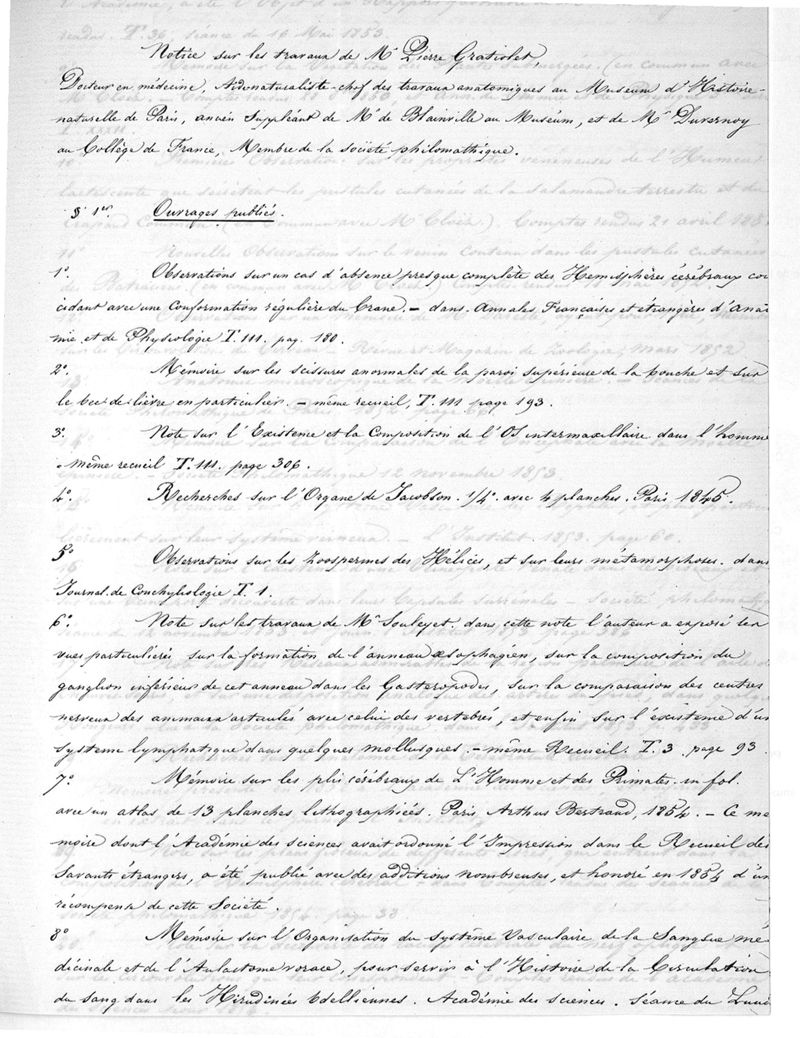 Notice sur les travaux de Mr Pierre Gratiolet,
Docteur en médecine, Aidenaturaliste-chef des travaux anatomiques au Museum d'Histoire-
naturelle de Paris, ancien Suppléant de Mr de Blainville au Museum, et de Mr Duvernoy
au Collège de France, Membre de la société philomathique.
§ 1er. Ouvrages publiés.
1º. Observations sur un cas d'absence presque complète des Hemisphères cérébraux coï
cidant avec une Conformation régulière du Crane. — dans Annales Françaises et etrangères d'Ana
mie et de Physiologie T. 111. pag. 180.
2º. Mémoire sur les scissures anormales de la paroi superieure de la bouche et sur
le bec de lièvre en particulier. — même recueil, T. 111 page 193.
3º. Note sur l'Existence et la Composition de l'OS intermaxillaire dans l'homme
même recueil T. 111. page 306.
4º. Recherches sur l'Organe de Jacobson. 1/4º. avec 4 planches. Paris 1845.
5º Observations sur les zoospermes des Hélices, et sur leurs métamorphoses. dans
Journal de Conchyliologie T. 1.
6º. Note sur les travaux de Mr Souleyet. dans cette note l'auteur a exposé les
vues particulières sur la formation de l'anneau œsophagien, sur la composition du
ganglion inférieur de cet anneau dans les Gasteropodes, sur la comparaison des centres
nerveux des animaux articulés avec celui des vertebrés, et enfin sur l'existence d'un
système lymphatique dans quelques mollusques. — même Recueil. T. 3. page 93
7º. Mémoire sur les plis cérébeaux de L'Homme et des Primates. in fol.
avec un atlas de 13 planches lithographiées. Paris, Arthus Bertrand, 1854. — Ce me
moire dont l'Académie des sciences avait ordonné l'Impression dans le Recueil des
Savants étrangers, a été publié avec des additions nombreuses, et honoré en 1854 d'un
récompense de cette Société.
8º Mémoire sur l'Organisation du système Vasculaire de la Sangsue mé
dicinale et de l'Aulastome vorace, pour servir à l'Histoire de la Circulation
du sang dans les Hirudinées Bdelliennes. Académie des sciences. Séance du Lund